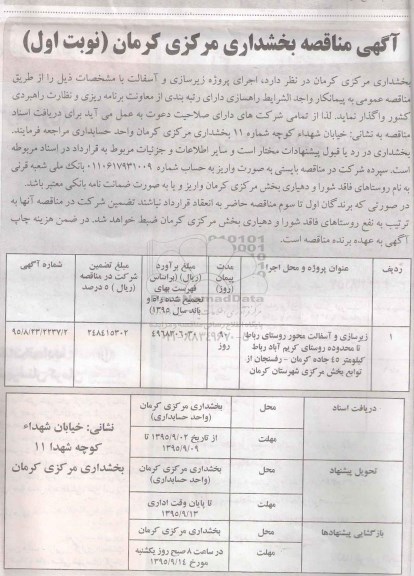 آگهی مناقصه بخشداری مرکزی کرمان (نوبت اول)
بخشداری مرکزی کرمان در نظر دارد، اجرای پروژه زیرسازی و آسفالت با مشخصات ذیل را از طریق
مناقصه عمومی به پیمانکار واجد الشرایط راهسازی دارای رتبه بندی از معاونت برنامه ریزی و نظارت راهبردی
کشور واگذار نماید. لذا از تمامی شرکت های دارای صلاحیت دعوت به عمل می آید برای دریافت اسناد
مناقصه به نشانی: خیابان شهداء کوچه شماره ۱۱ بخشداری مرکزی کرمان واحد حسابداری مراجعه فرمایند.
بخشداری در رد یا قبول پیشنهادات مختار است و سایر اطلاعات و جزئیات مربوط به قرارداد در اسناد مربوطه
است. سپرده شرکت در مناقصه بایستی به صورت واریز به حساب شماره ۰۱۱۰۶۱۷۹۳۱۰۰۹ بانک ملی شعبه قرنی
به نام روستاهای فاقد شورا و دهیاری بخش مرکزی کرمان واریز و یا به صورت ضمانت نامه بانکی معتبر باشد.
در صورتی که برندگان اول تا سوم مناقصه حاضر به انعقاد قرارداد نباشند، تضمین شرکت در مناقصه آنها به
ترتیب به نفع روستاهای فاقد شورا و دهیاری بخش مرکزی کرمان ضبط خواهد شد. در ضمن هزینه چاپ
آگهی به عهده برنده مناقصه است.
ردیف
عنوان پروژه و محل اجرا
مدت پیمان (روز)
مبلغ برآورد (ریال) (براساس فهرست بهای تجمیع شده راه و باند سال ۱۳۹۵)
مبلغ تضمین شرکت در مناقصه (ریال) ۵ درصد
شماره آگهی
۱
زیرسازی و آسفالت محور روستای رباط
تا محدوده روستای کریم آباد رباط
کیلومتر ۴۵ جاده کرمان - رفسنجان از
توابع بخش مرکزی شهرستان کرمان
روز
۲۴۸۴۱۵۳۰۲
۹۵/۸/۲۳/۲۲۳۷/۲
دریافت اسناد
محل
بخشداری مرکزی کرمان
(واحد حسابداری)
مهلت
از تاریخ ۱۳۹۵/۹/۰۲ تا
۱۳۹۵/۹/۰۹
تحویل پیشنهاد
محل
بخشداری مرکزی کرمان
(واحد حسابداری)
مهلت
تا پایان وقت اداری
۱۳۹۵/۹/۱۳
بازگشایی پیشنهادها
محل
بخشداری مرکزی کرمان
مهلت
در ساعت ۸ صبح روز یکشنبه
مورخ ۱۳۹۵/۹/۱۴
نشانی: خیابان شهداء
کوچه شهدا ۱۱
بخشداری مرکزی کرمان